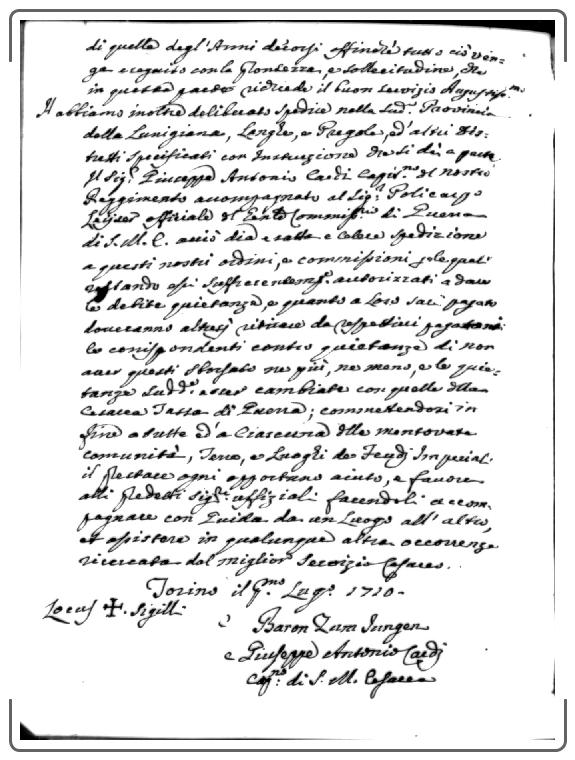 di quelle degl'Anni decorsi affinché tutto ciò ven-
ga eseguito con la prontezza, e sollecitudine, che
in questa parte richiede il buon servizio Augustiss.mo
Habbiamo inoltre deliberato spedire nella Sud.a Provincia
della Lunigiana, Langhe, e Pregola, ed'altri Dis-
tretti specificati con Instruzione che si dà a parte
Il Sig.r Giuseppe Antonio Cardi Capit.no del nostro
Reggimento accompagnato al Sig.r Policarpo
offiziale del Commiss.rio di Guerra
di S. M. C. acciò dia esatta e celere spedizione
a questi nostri ordini, e commissioni per le quali
restando essi sufficientem.e autorizzati a dare
le debite quietanze, e quanto a Loro sarà pagato
doveranno altresì ritirare da respettivi pagatori
le corrispondenti contro quietanze di non
aver questi sborsato ne più, ne meno, e le quie-
tanze Sudd.e esser cambiate con quelle della
Cesarea Cassa di Guerra; commettendosi in
fine a tutte ed'a Ciascuna delle mentovate
comunità, Terre, e Luoghi de Feudi Imperiali
il prestare ogni opportuno aiuto, e favore
alli predetti Sig.ri offiziali facendoli accom-
pagnare con Guida da un Luogo all'altro,
et assistere in qualunque altra occorrenza
ricercata dal miglior Servizio Cesareo.
Torino il p.mo Lug.o 1710.
Locus ✠ Sigilli
Baron Zum Jungen
e Giuseppe Antonio Cardi
Cap.no di S. M. Cesarea